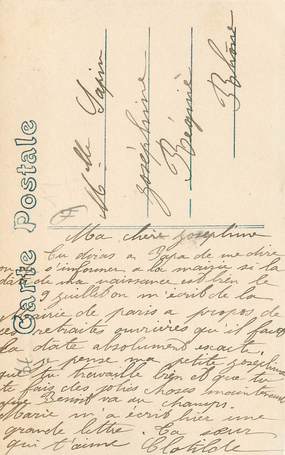 Carte Postale
Mlle Papin
Joséphine
Régnié
Rhône
Ma chère Joséphine
Tu diras a Papa de me dire
ou s'informer a la mairie si la
date de ma naissance est bien le
9 juillet on m'écrit de la
mairie de paris a propos de
ces retraites ouvrières qu'il faut
la date absolument exacte.
je pense ma petite Joséphine
que tu travaille bien et que tu
fais des jolies choses maintenant
que Benoit va au champs.
Marie m'a écrit hier une
grande lettre. Ta sœur
qui t'aime Clotilde